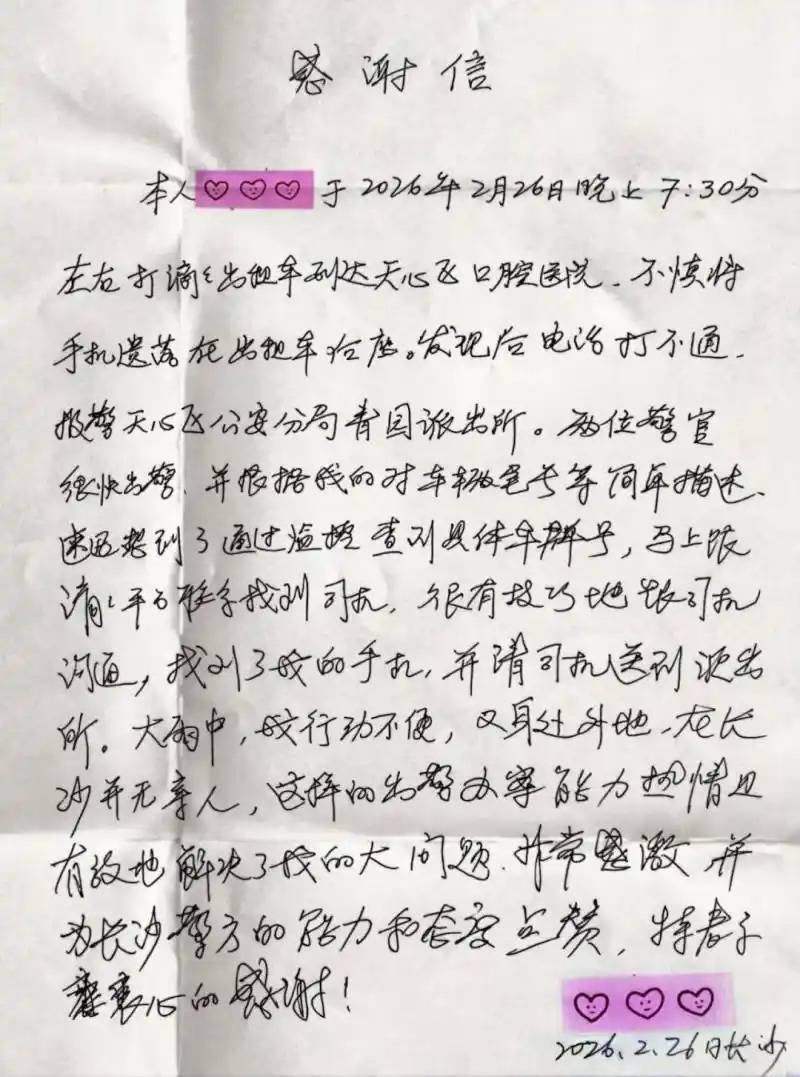 感谢信
本人 于2026年2月26日晚上7:30分
左右打滴滴出租车到达天心区口腔医院.不慎将
手机遗落在出租车后座。发现后电话打不通.
报警天心区公安分局青园派出所。两位警官
很快出警.并根据我的对车辆尾号等简单描述.
迅速想到了通过监控查到具体车牌号,马上跟
滴滴平台联系找到司机.很有技巧地跟司机
沟通,找到了我的手机,并请司机送到派出
所。大雨中,我行动不便,又身处外地.在长
沙并无亲人,这样的出警办案能力热情且
有效地解决了我的大问题.非常感激.并
为长沙警方的能力和态度点赞,特表示
衷心的感谢!
2026.2.26日长沙